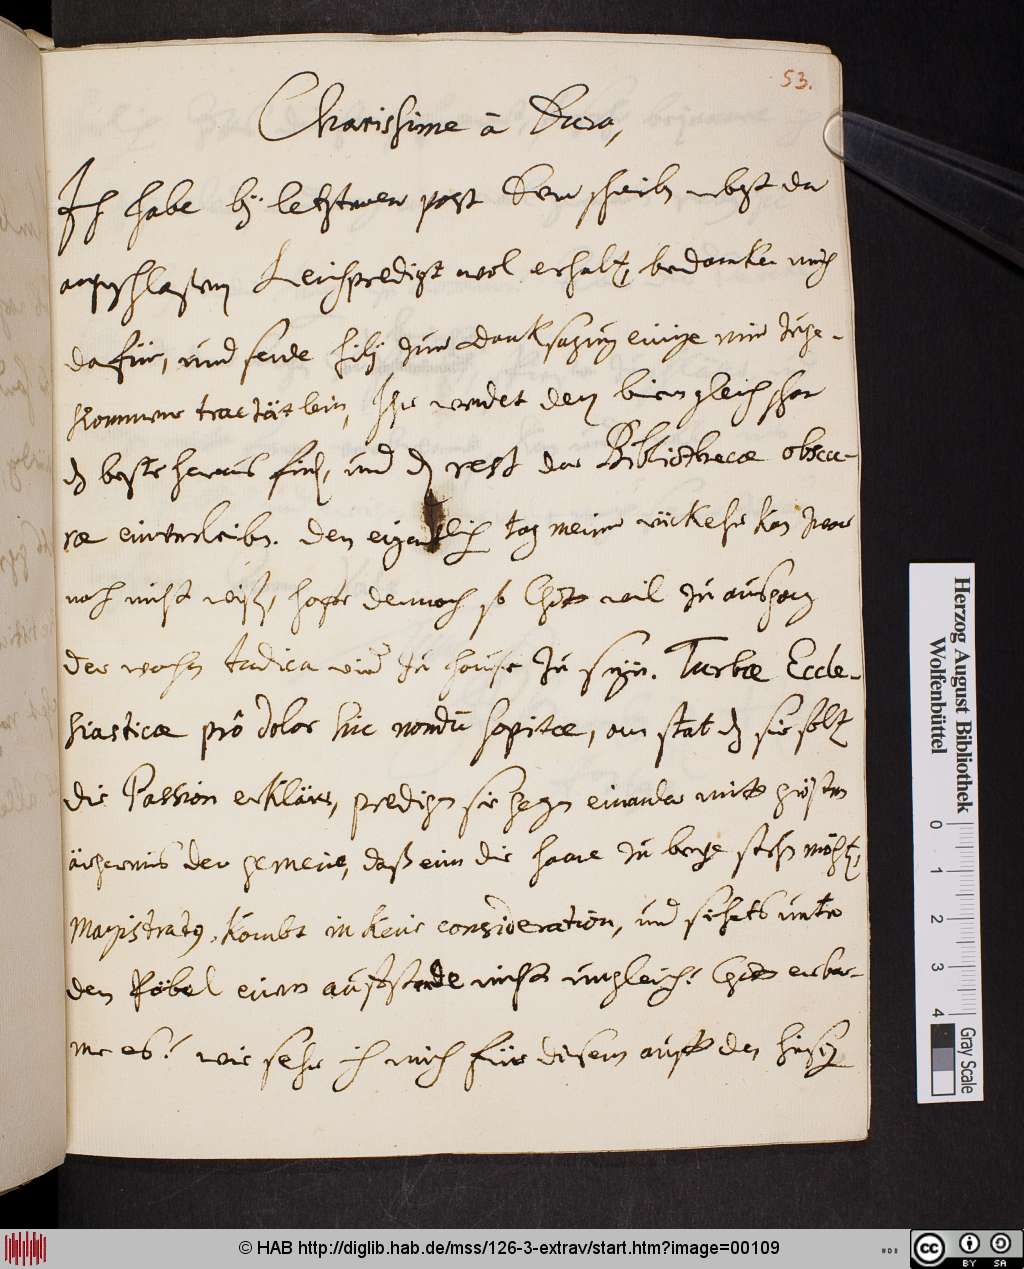 53.
Charissime â Dura,
Ich habe bÿ letstmen post dem schreibn nebst der
angeschlaßenen Leichpredigt wol erhaltn bedancke mich
dafür, und sende hibÿ zur dancksagung einige mir zuge-
kommene tractätlein, Ihr werdet den bienen gleich
dz beste heraus, und dz rest der Bibliothecæ obscu-
ræ einverleibn. Den eigentlich tag meiner rückkehr kan zwar
noch nicht wißen, hoffe dennoch so Gott wil zu ausgang
der wochn Judica wider zu hause zu seyn. Turbæ Eccle-
siasticæ prô dolor hic nondū sopitæ, an stat dz sie soltn
die Passion erklärn, predign sie gegn einander mitt grösten
ärgernis der gemeine, daß eim die haare zu berge stehn möchtn,
Magistratus kombt in keine consideration, und sihets unter
den Pöbel einem auffstande nicht ungleich! Gott erbar-
me es! wie sehr ich mich für disem auff den
Herzog August Bibliothek
Wolfenbüttel
0 1 2 3 4
Gray Scale
© HAB http://diglib.hab.de/mss/126-3-extrav/start.htm?image=00109
cc BY SA